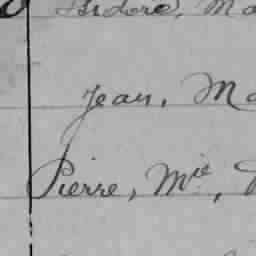 Isidore, Ma
Jean, Ma
Pierre, Mie,